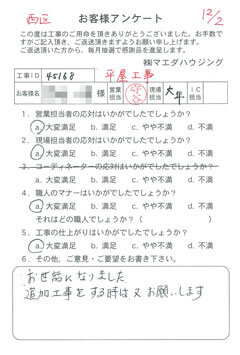 西区
12/2
お客様アンケート
この度は工事のご用命を頂きありがとうございました。お手数で
すがご記入頂き、ご返送頂きますようお願い申し上げます。
ご返送頂いた方から、毎月抽選で感謝品を進呈します。
㈱マエダハウジング
工事ID 45168 平屋工事
お客様名 様 営業担当 現場担当 大平 IC担当
1．営業担当者の応対はいかがでしたでしょうか？
a.大変満足 b. 満足 c. やや不満 d. 不満
2．現場担当者の応対はいかがでしたでしょうか？
a.大変満足 b. 満足 c. やや不満 d. 不満
3．コーディネーターの応対はいかがでしたでしょうか？
a. 大変満足 b. 満足 c. やや不満 d. 不満
4．職人のマナーはいかがでしたでしょうか？
a.大変満足 b. 満足 c. やや不満 d. 不満
それはどの職人でしょうか？（ ）
5．工事の仕上がりはいかがでしたでしょうか？
a.大変満足 b. 満足 c. やや不満 d. 不満
6．その他、ご意見・ご要望をお書き下さい。
お世話になりました
追加工事をする時は又お願いします